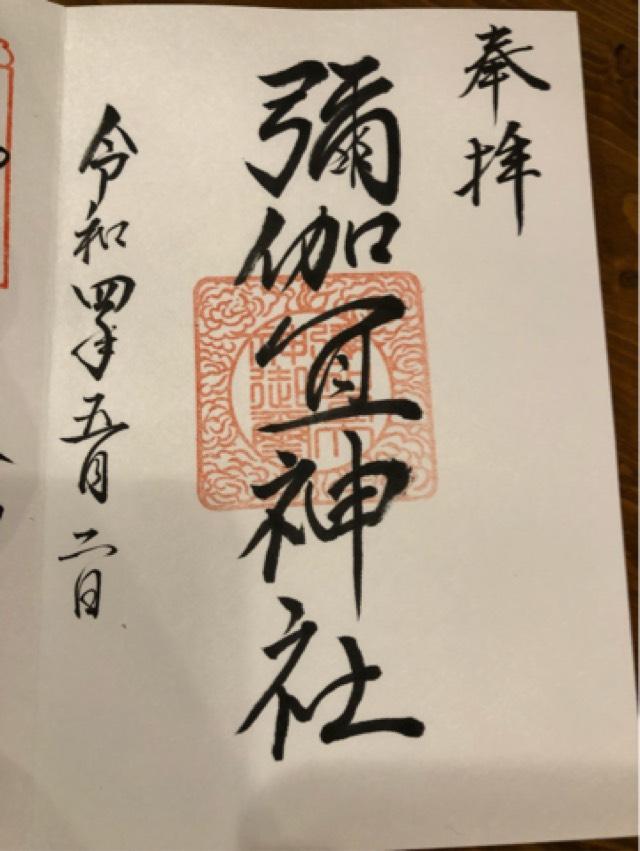 奉拝
彌伽宜神社
令和四年五月二日